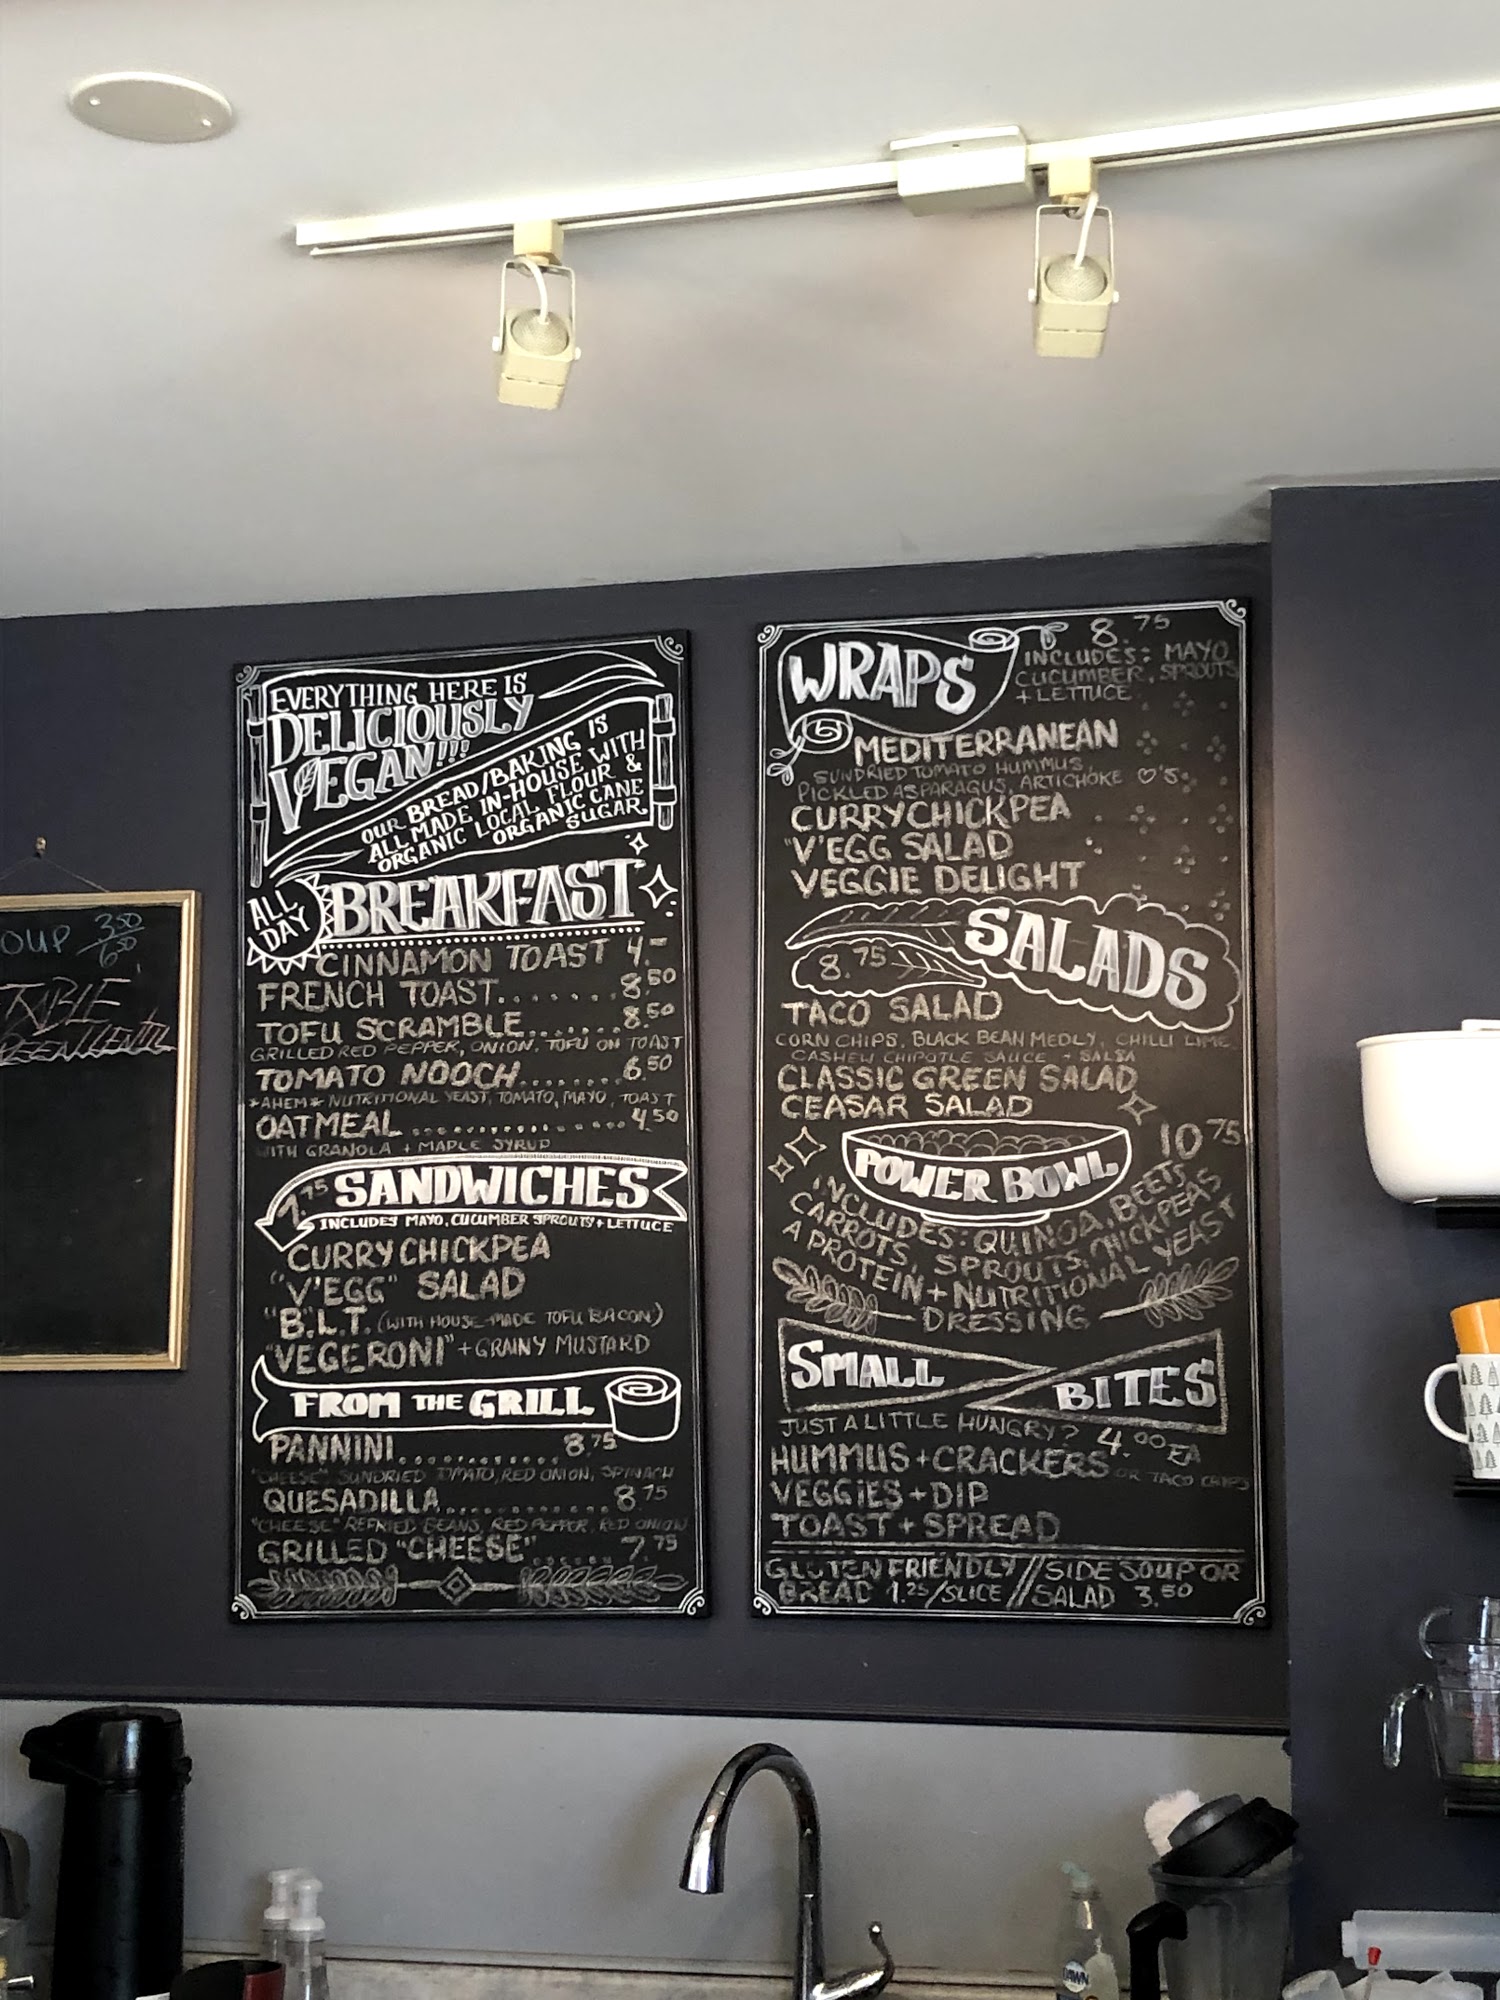 OUP 3.50
6.50
TABLE
EVERYTHING HERE IS
DELICIOUSLY
VEGAN!!!
OUR BREAD/BAKING IS
ALL MADE IN-HOUSE WITH
ORGANIC LOCAL FLOUR &
ORGANIC CANE
SUGAR.
ALL DAY BREAKFAST
CINNAMON TOAST 4.-
FRENCH TOAST....... 8.50
TOFU SCRAMBLE....... 8.50
GRILLED RED PEPPER, ONION, TOFU ON TOAST
TOMATO NOOCH....... 6.50
*AHEM* NUTRITIONAL YEAST, TOMATO, MAYO, TOAST
OATMEAL.............. 4.50
WITH GRANOLA + MAPLE SYRUP
7.75 SANDWICHES
INCLUDES MAYO, CUCUMBER SPROUTS + LETTUCE
CURRY CHICKPEA
"V'EGG" SALAD
"B.L.T." (WITH HOUSE-MADE TOFU BACON)
"VEGERONI" + GRAINY MUSTARD
FROM THE GRILL
PANNINI............ 8.75
"CHEESE" SUNDRIED TOMATO, RED ONION, SPINACH
QUESADILLA............ 8.75
"CHEESE" REFRIED BEANS, RED PEPPER, RED ONION
GRILLED "CHEESE"....... 7.75
WRAPS 8.75
INCLUDES: MAYO
CUCUMBER, SPROUTS
+ LETTUCE
MEDITERRANEAN
SUNDRIED TOMATO HUMMUS,
PICKLED ASPARAGUS, ARTICHOKE ♡'S
CURRY CHICKPEA
"V'EGG SALAD
VEGGIE DELIGHT
8.75 SALADS
TACO SALAD
CORN CHIPS, BLACK BEAN MEDLY, CHILLI LIME
CASHEW CHIPOTLE SAUCE + SALSA
CLASSIC GREEN SALAD
CEASAR SALAD
POWER BOWL 10.75
INCLUDES: QUINOA, BEETS,
CARROTS, SPROUTS, CHICKPEAS
A PROTEIN + NUTRITIONAL YEAST
DRESSING
SMALL BITES
JUST A LITTLE HUNGRY? 4.00 EA
HUMMUS + CRACKERS OR TACO CHIPS
VEGGIES + DIP
TOAST + SPREAD
GLUTEN FRIENDLY // SIDE SOUP OR
BREAD 1.25/SLICE // SALAD 3.50
DAWN